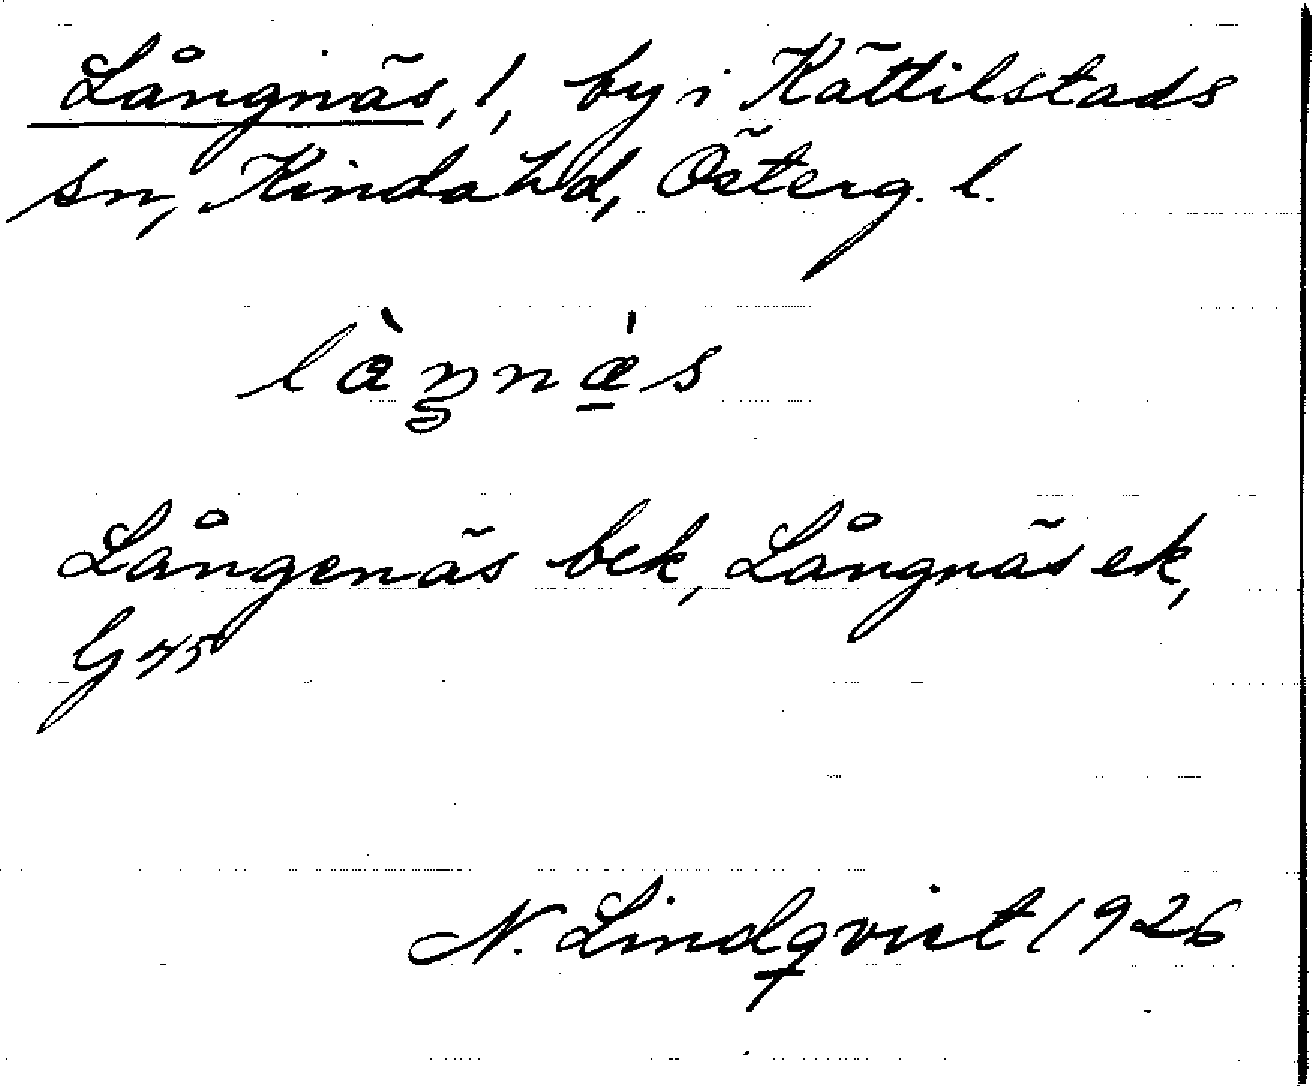 Långnäs, !, by i Kättilstads
sn, Kinda hd, Österg. l.
làŋnǽ̠s
Långenäs bek, Långnäs ek,
G 75
N. Lindqvist 1926